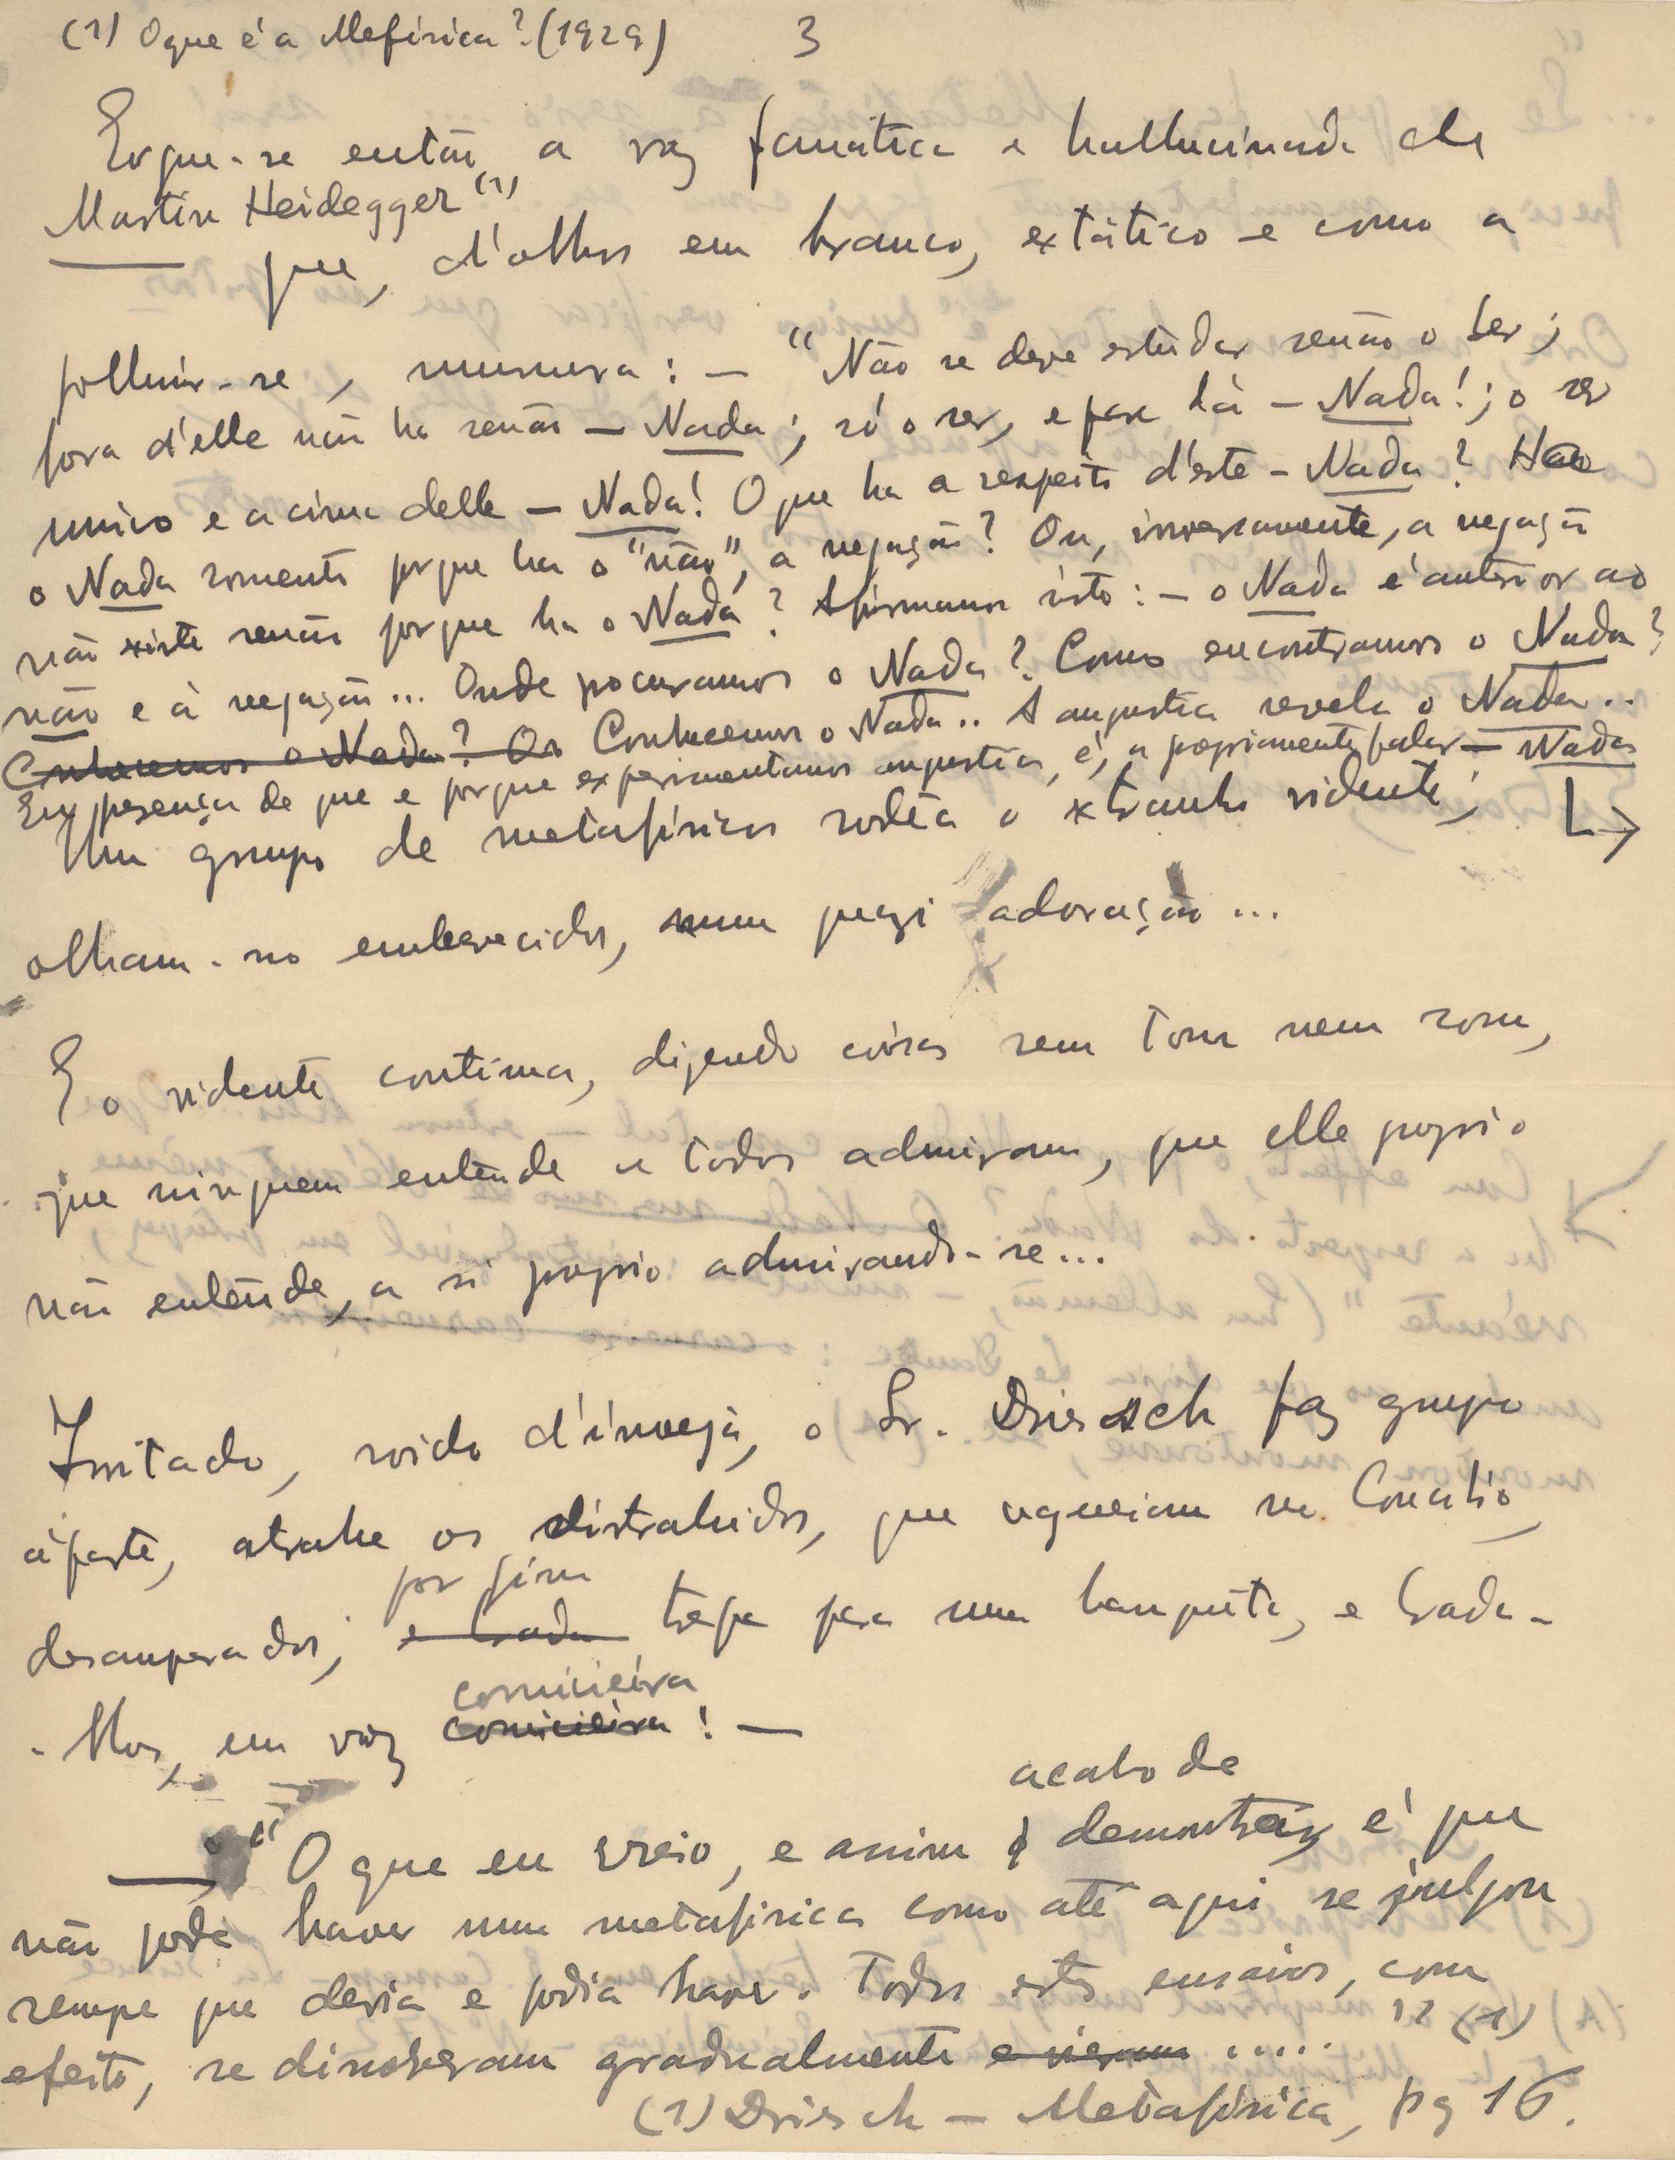 (1) O que é a Mefísica? (1929)
3
Ergue-se então a voz fanática e hallucinada de
Martin Heidegger (1)
que, d'olhos em branco, extático e como a
polluir-se, murmura: — "Não se deve estudar senão o ser;
fora d'elle não ha senão — Nada; só o ser, e para lá — Nada!; o ser
unico e acima delle — Nada! O que ha a respeito d'este — Nada? Ha
o Nada somente porque ha o "não", a negação? Ou, inversamente, a negação
não existe senão porque ha o Nada? Afirmamos isto: — o Nada é anterior ao
não e á negação... Onde procuramos o Nada? Como encontramos o Nada?
Conhecemos o Nada? Os Conhecemos o Nada.. A angustia revela o Nada..
Em presença de que e porque experimentamos angustia, é, a propriamente falar — Nada
Um grupo de metafísicos rodêa o extranho vidente;
olham-no embevecidos, num quasi adoração...
E o vidente continua, dizendo coisas sem tom nem som,
que ninguem entende e todos admiram, que elle proprio
não entende, a si proprio admirando-se...
Irritado, roido d'inveja, o Sr. Driesch faz grupo
áparte, atrahe os distrahidos, que vagueiam no Concilio,
desamparados; e brada por fim trepa para uma banqueta, e brada-
-lhes, em voz comicieira comicieira! —
— "O que eu creio, e assim acabo de demonstrar, é que
não pode haver uma metafisica como até aqui se julgou
sempre que devia e podia haver. Todos estes ensaios, com
efeito, se dissolveram gradualmente e vieram ....." (1)
(1) Driesch — Metafísica, pg 16.